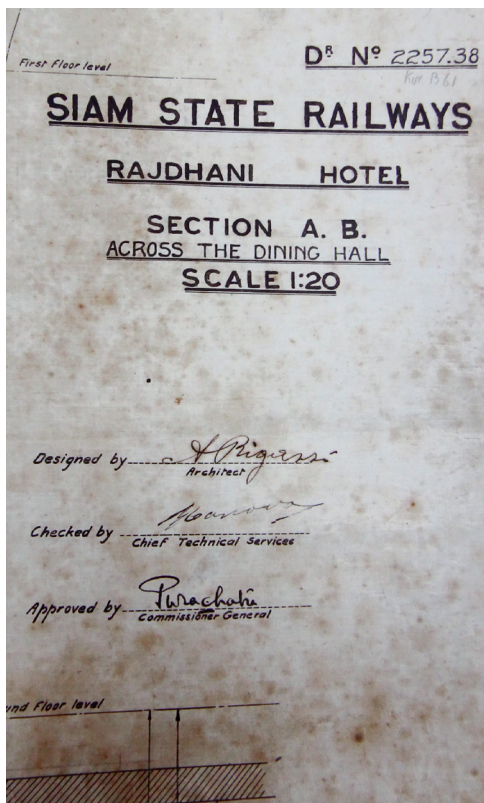 First Floor level
Dᴿ Nº 2257.38
SIAM STATE RAILWAYS
RAJDHANI HOTEL
SECTION A. B.
ACROSS THE DINING HALL
SCALE 1:20
Designed by A Rigazzi
Architect
Checked by
Chief Technical Services
Approved by Purachatra
Commissioner General
und Floor level